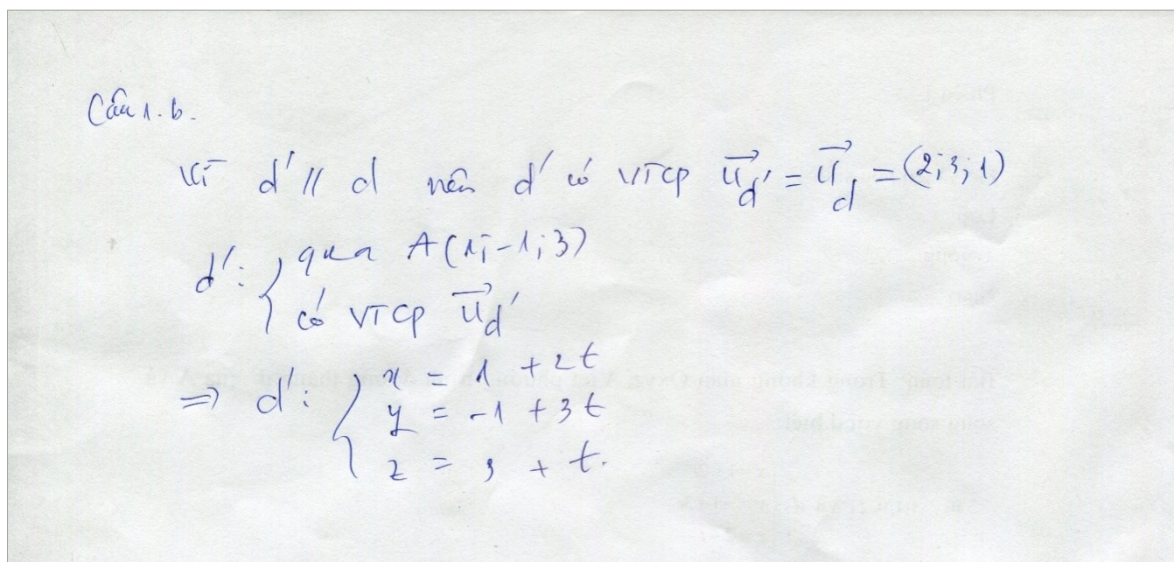 Câu 1.b.
Vì d' // d nên d' có VTCP u⃗_d' = u⃗_d = (2;3;1)
d': { qua A(1;-1;3)
có VTCP u⃗_d'
⇒ d': { x = 1 + 2t
y = -1 + 3t
z = 3 + t.